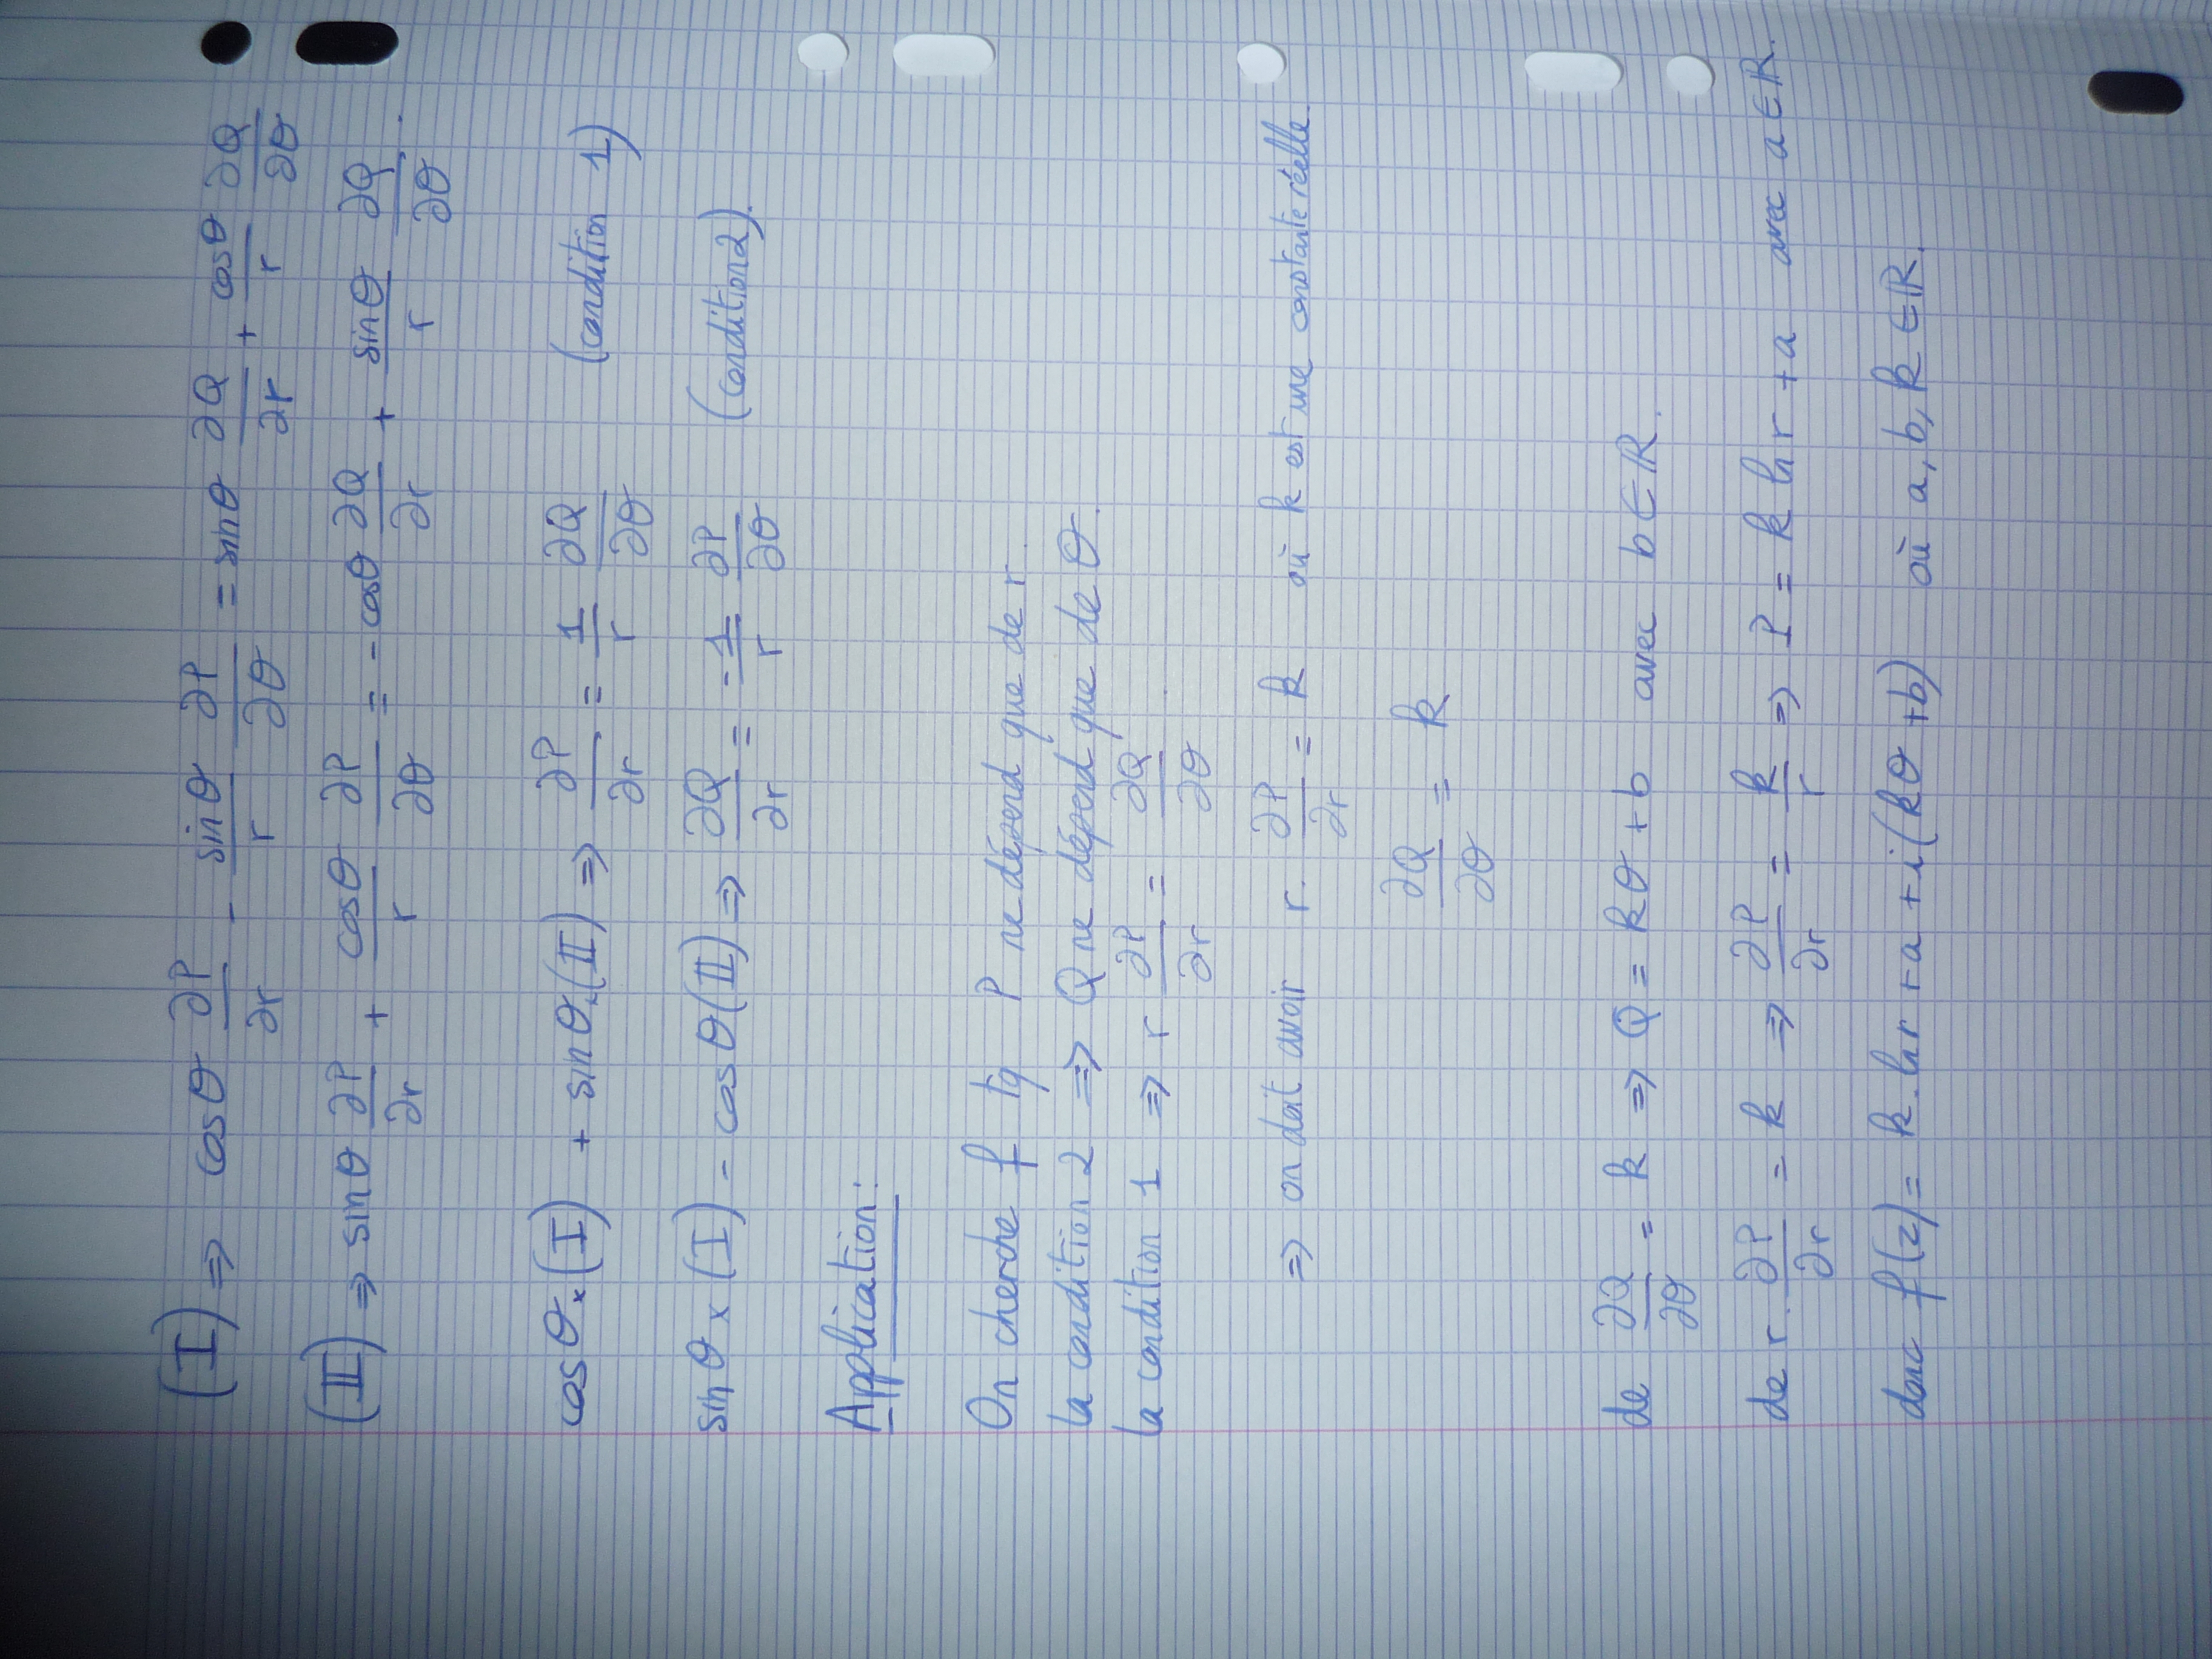 (I) ⇒ cosθ ∂P/∂r - sinθ/r ∂P/∂θ = sinθ ∂Q/∂r + cosθ/r ∂Q/∂θ
(II) ⇒ sinθ ∂P/∂r + cosθ/r ∂P/∂θ = - cosθ ∂Q/∂r + sinθ/r ∂Q/∂θ .
cosθ×(I) + sinθ×(II) ⇒ ∂P/∂r = 1/r ∂Q/∂θ (condition 1)
sinθ × (I) - cosθ(II) ⇒ ∂Q/∂r = -1/r ∂P/∂θ (condition 2).
Application:
On cherche f tq P ne dépend que de r.
la condition 2 ⇒ Q ne dépend que de θ.
la condition 1 ⇒ r ∂P/∂r = ∂Q/∂θ .
⇒ on doit avoir r. ∂P/∂r = k où k est une constante réelle.
∂Q/∂θ = k
de ∂Q/∂θ = k ⇒ Q = kθ + b avec b ∈ ℝ.
de r. ∂P/∂r = k ⇒ ∂P/∂r = k/r ⇒ P = k ln r + a avec a ∈ ℝ.
donc f(z) = k.ln r + a + i(kθ + b) où a, b, k ∈ ℝ.